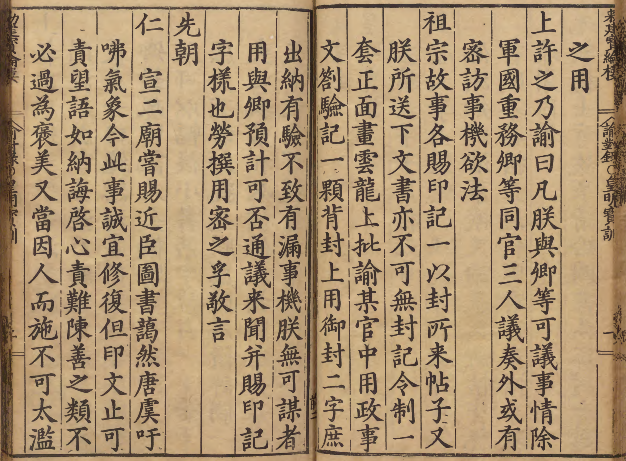 之用
上許之乃諭曰凡朕與卿等可議事情除
軍國重務卿等同官三人議奏外或有
密訪事機欲法
祖宗故事各賜印記一以封所来帖子又
朕所送下文書亦不可無封記令制一
套正面畫雲龍上批諭某官中用政事
文劄驗記一顆背封上用御封二字庶
出納有驗不致有漏事機朕無可謀者
用與卿預計可否通議来聞并賜印記
字樣也勞撰用密之孚敬言
先朝
仁 宣二廟嘗賜近臣圖書藹然唐虞吁
咈氣象今此事誠宜修復但印文止可
責望語如納誨啓心責難陳善之類不
必過為褒美又當因人而施不可太濫